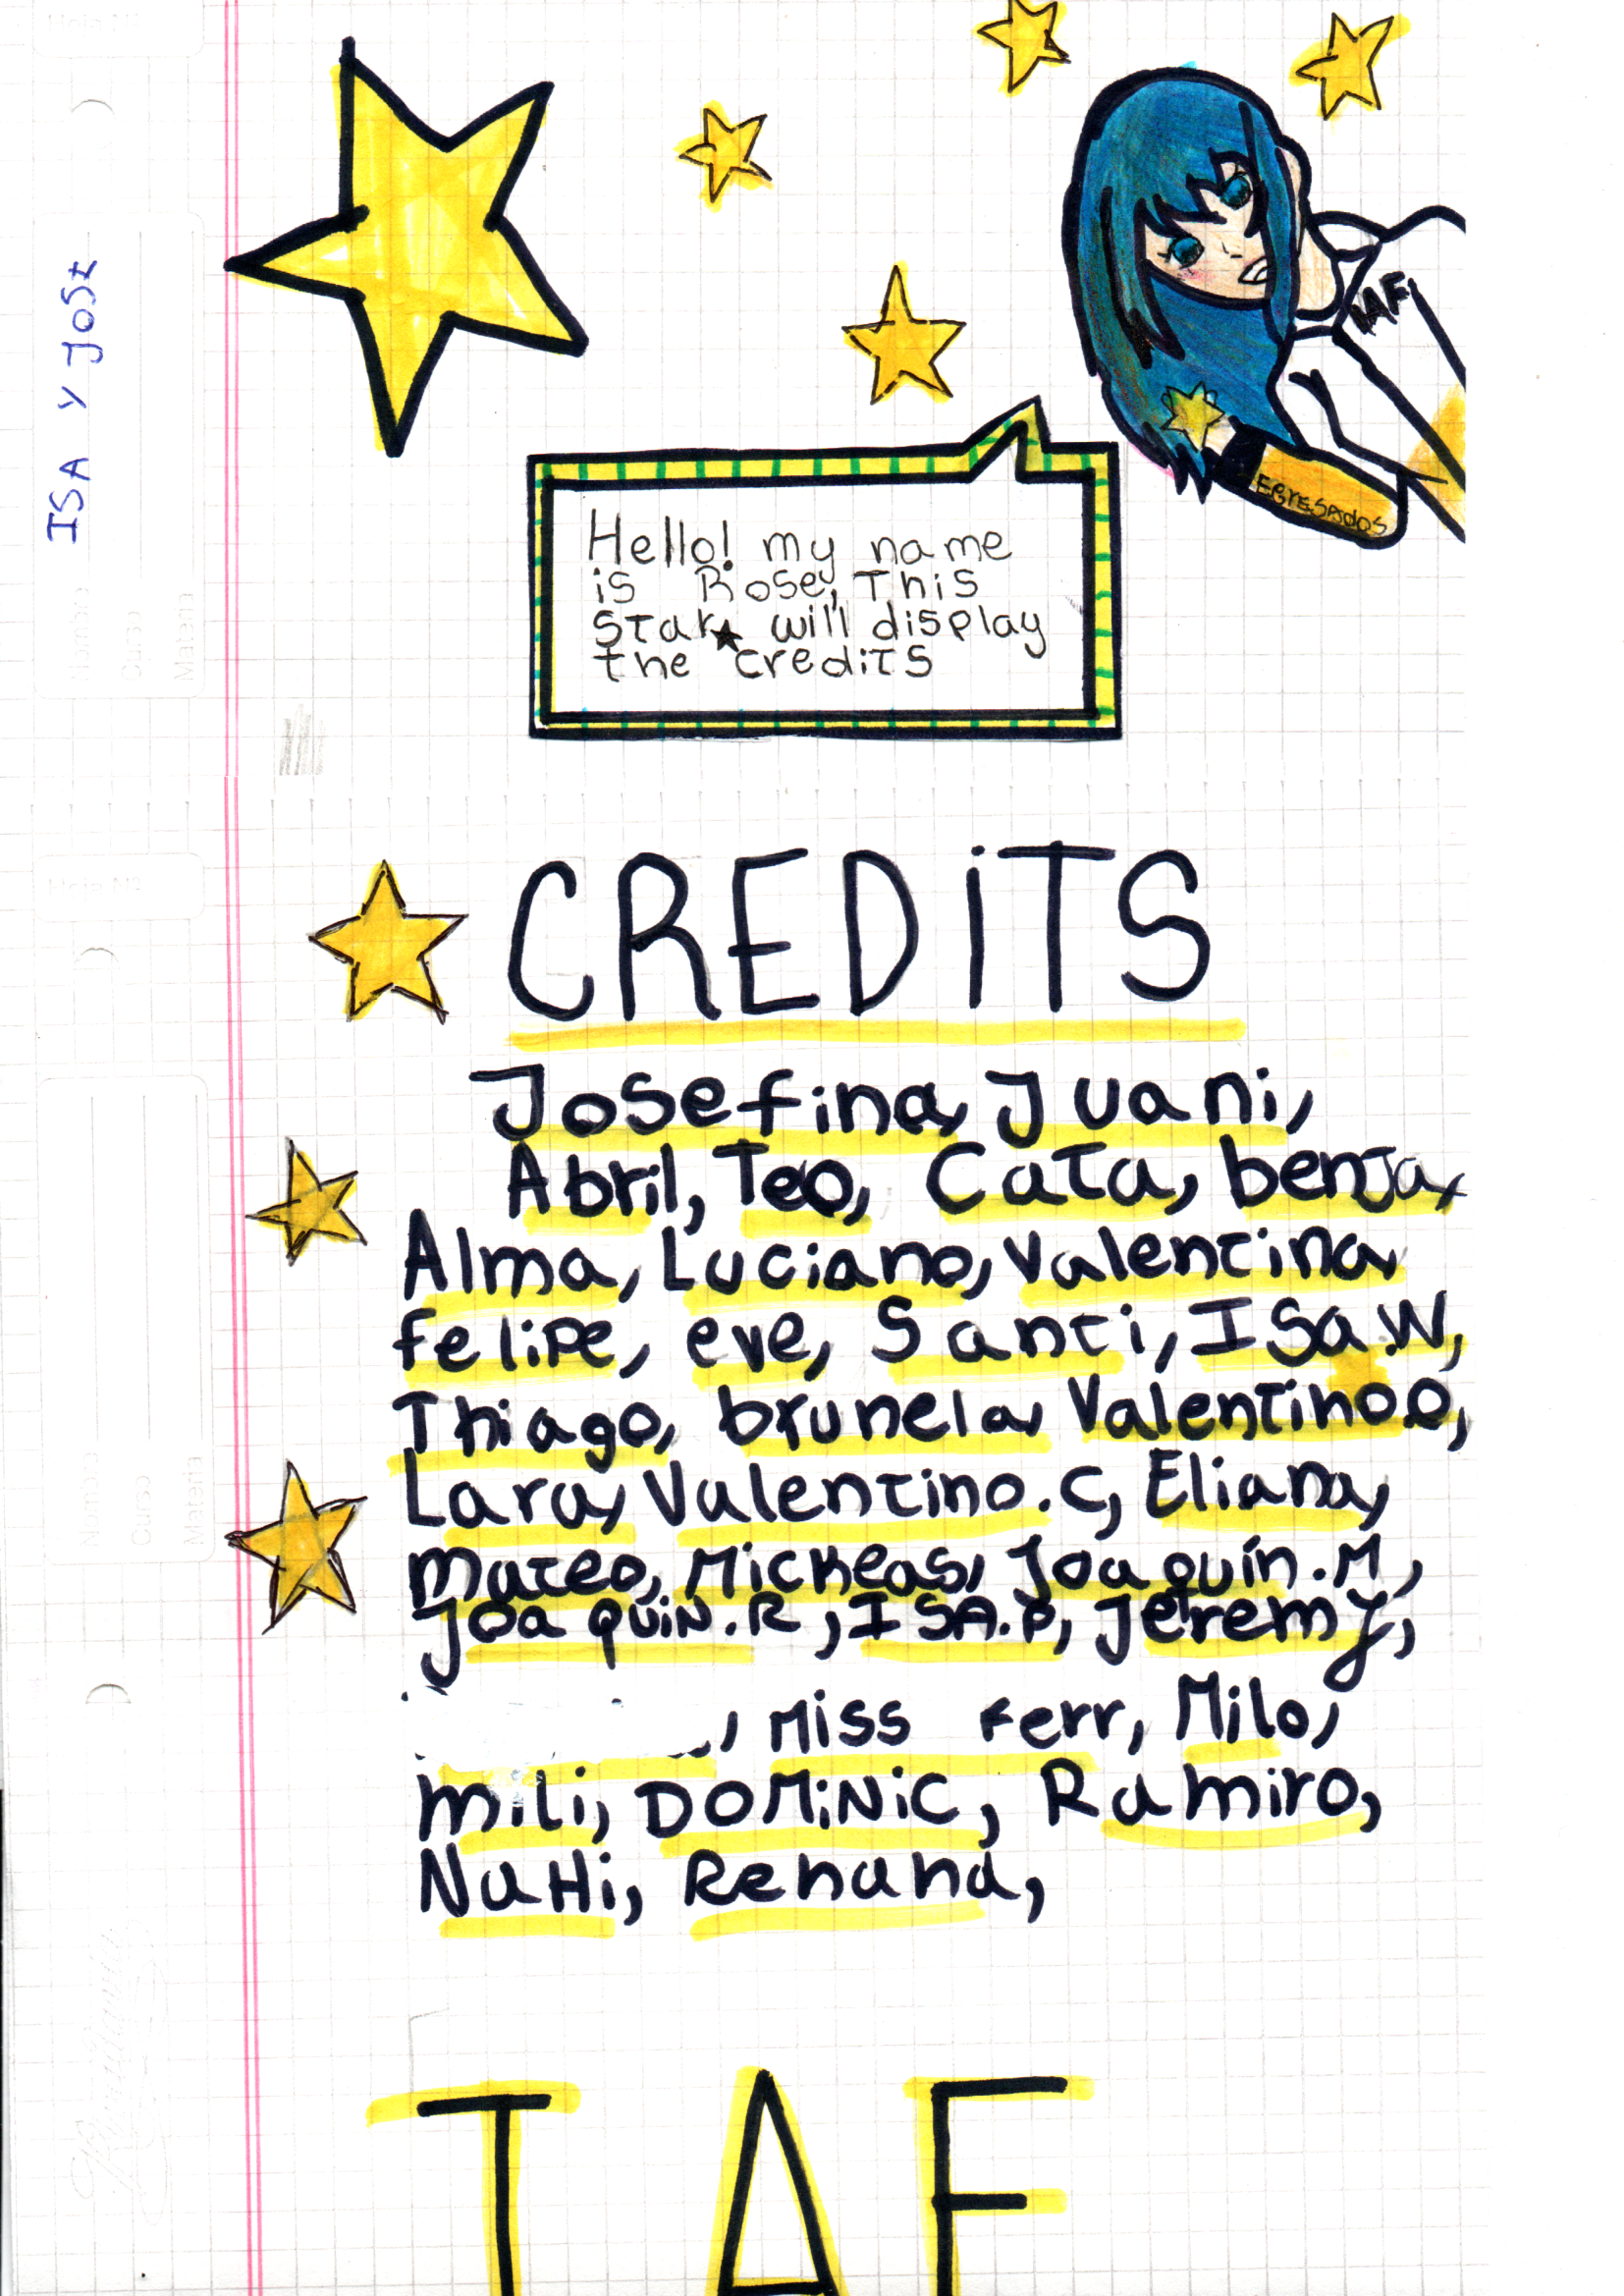 ISA Y JOSE
AF
EGRESADOS
Hello! my name
is Rose, This
star★ will display
the credits
CREDiTS
Josefina, Juani,
Abril, Teo, Cata, benja,
Alma, Luciano, Valentina
felipe, eve, Santi, ISa.W,
Thiago, brunela, Valentino.O,
Lara, Valentino.C, Eliana,
Mateo, Mickeas, Joaquín.M,
JoaquiN.R, ISA.P, Jeremy,
, Miss Ferr, Milo,
Mili, DOMiNiC, Ramiro,
NaHi, Renana,
TAF